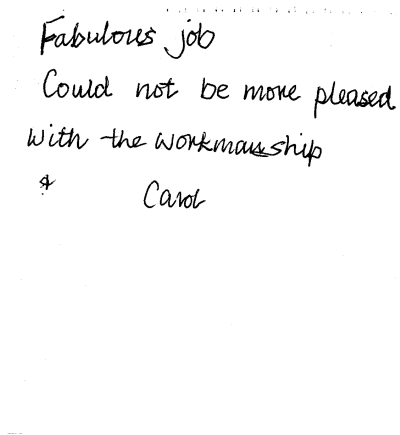 Fabulous job
Could not be more pleased
with the workmanship
&
Carol